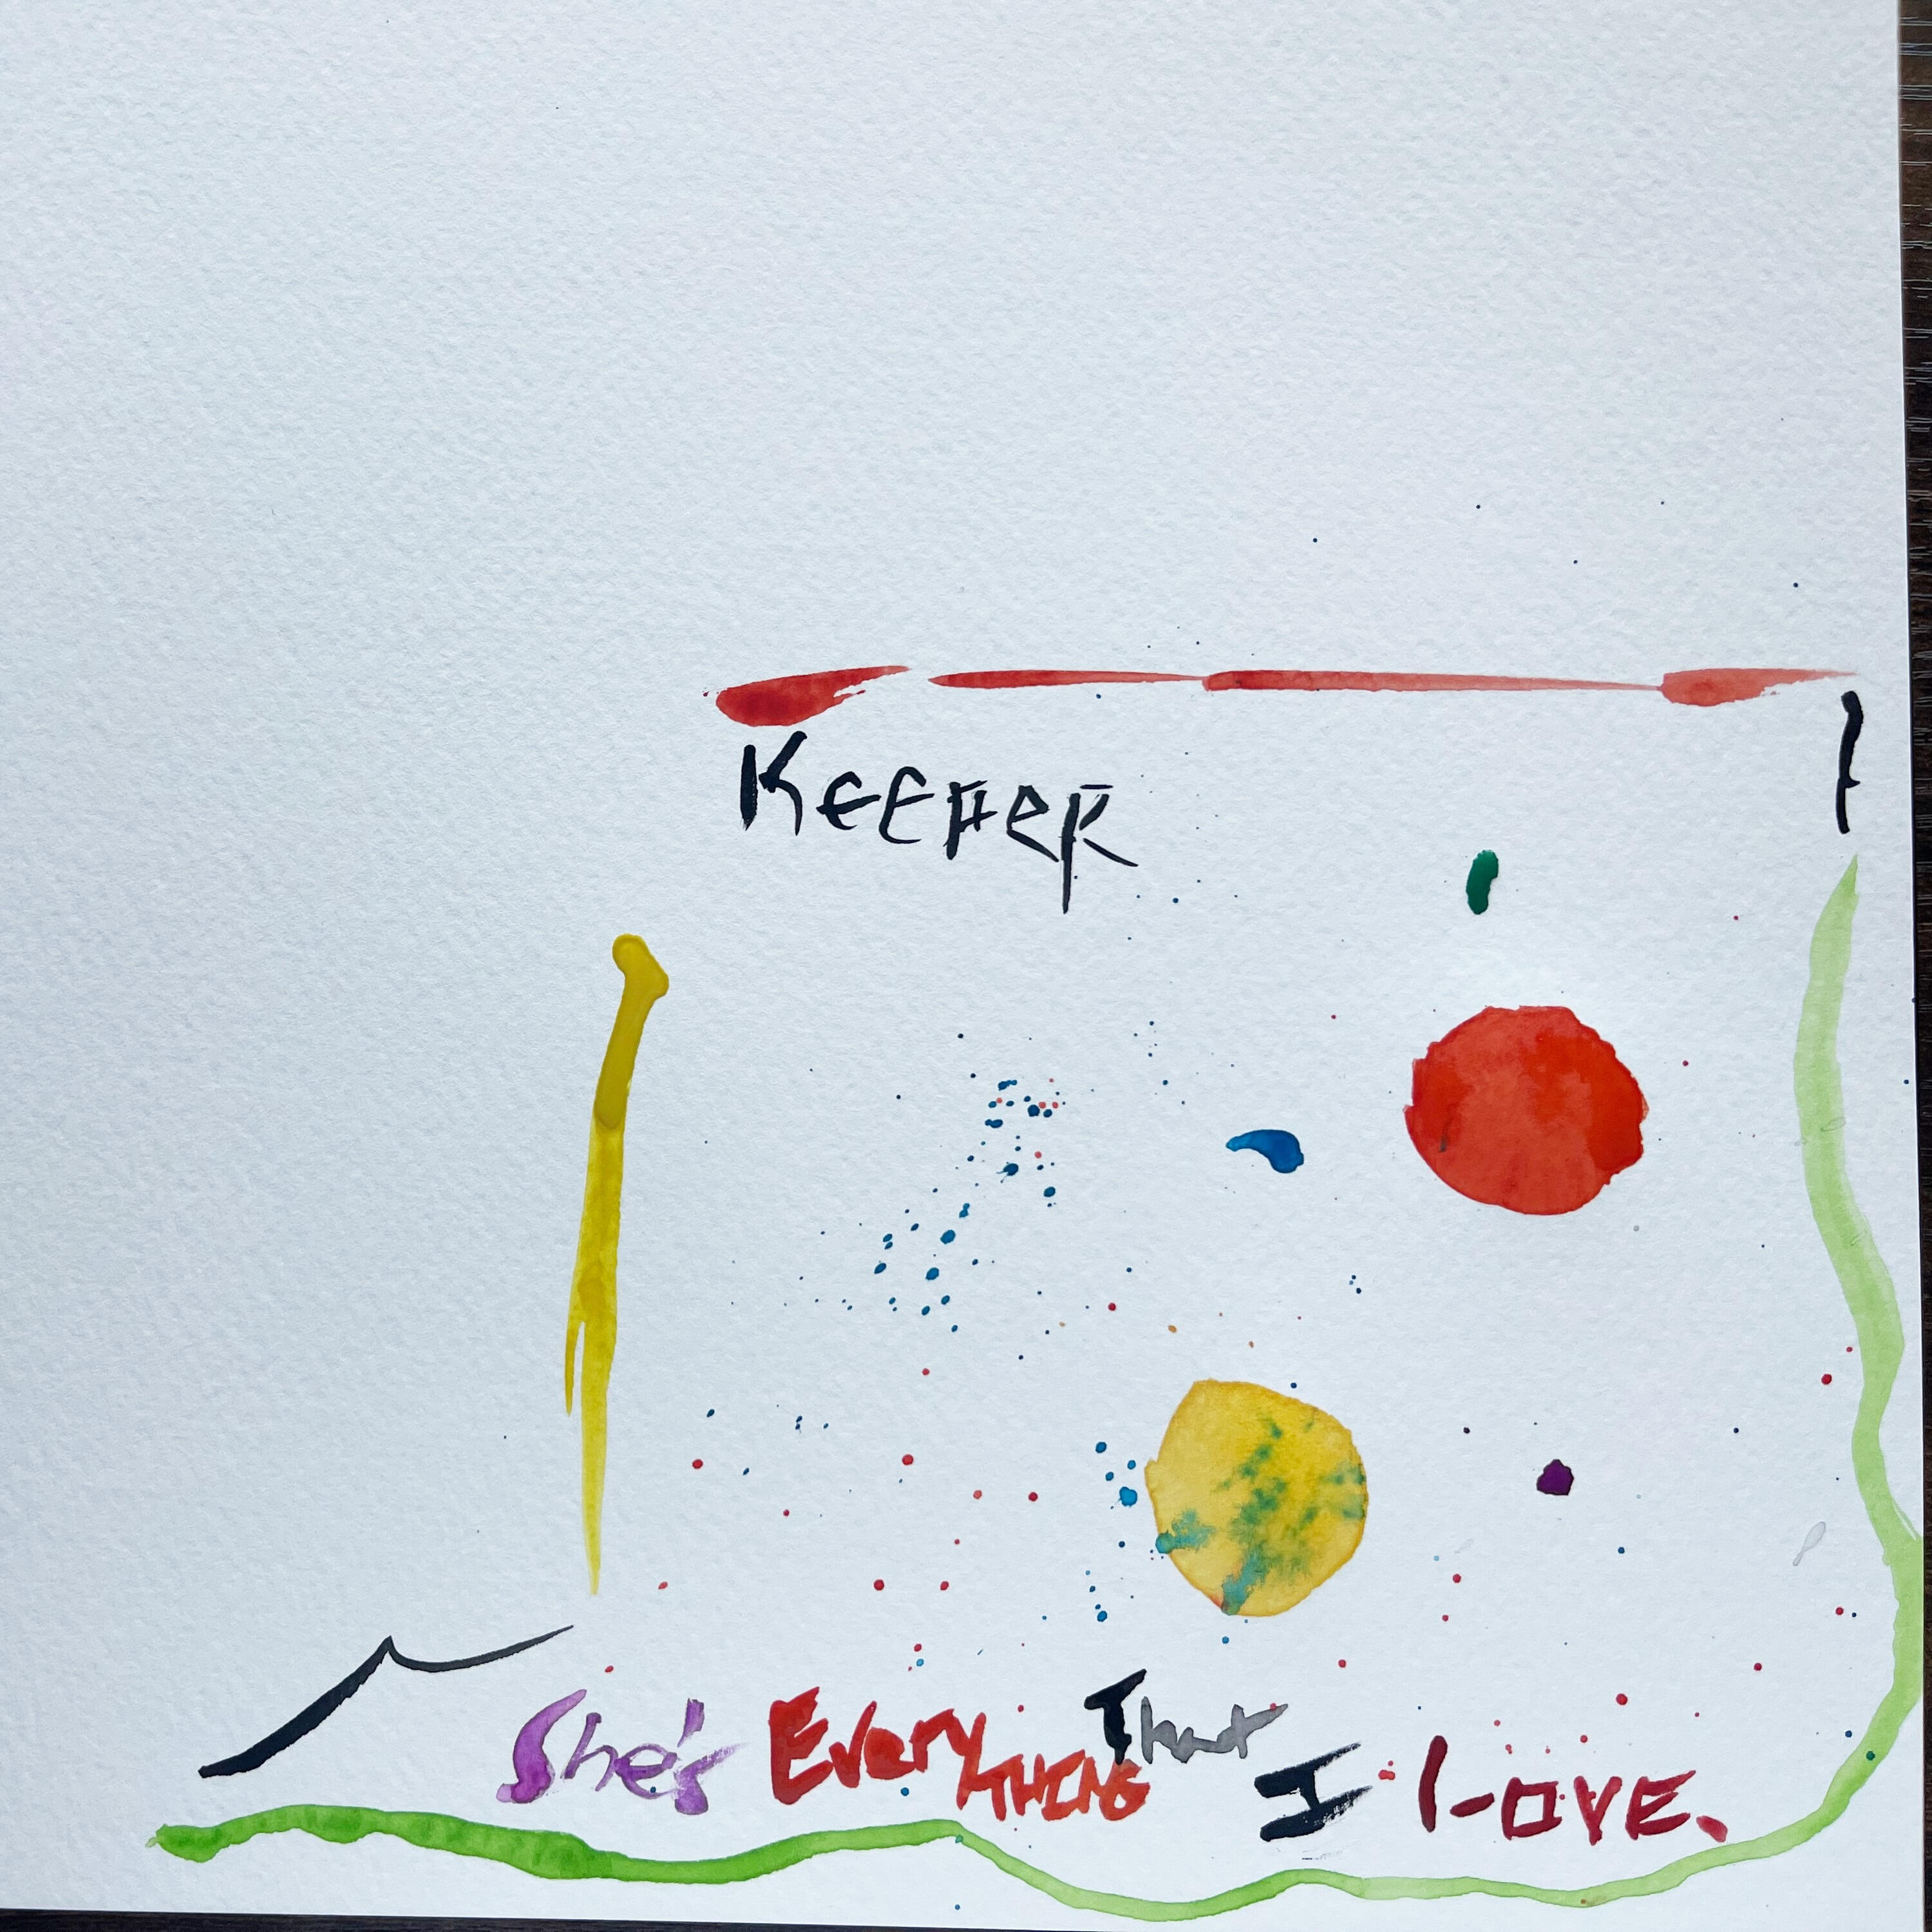 Keeper
She's EveryTHING That I LOVE.